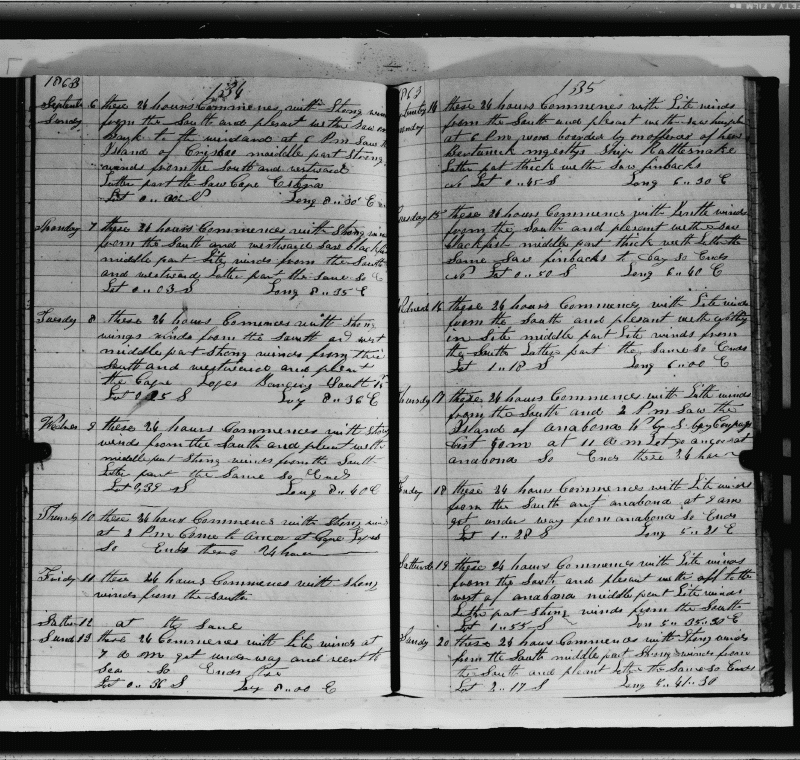 1863
134
September 6 these 24 hours Commences with Strong winds
Sunday from the South and pleasant wether Saw
bark to the windard at 6 P m Saw the
Island of Corisco middle part Strong
winds from the South and westward
Latter part the Saw Cape
Lat 0 .. N Long 8 .. 30 E
Monday 7 these 24 hours Commences with Strong winds
from the South and westward Saw blackfish
middle part Lite winds from the South
and westward Latter part the Same So E
Lat 0 .. 03 S Long 8 .. 35 E
Tuesday 8 these 24 hours Commences with Strong
wings winds from the South and west
middle part Strong winds from the
South and westward and pleant
the Cape Lopes Baring South 15
Lat 0..25 S Long 8 .. 36 E
Wednes 9 these 24 hours Commences with Strong
winds from the South and pleant wether
middle part Strong winds from the South
Latter part the Same So Ends
Lat 0,39 S Long 8 .. 40 E
Thursdy 10 these 24 hours Commences with Strong winds
at 2 P m Came to Ancor at Cape Lopes
So Ends these 24 hours
Fridy 11 these 24 hours Commences with Strong
winds from the South
Satter 12 at the Same
Sund 13 these 24 Commences with Lite winds at
7 a m got under way and went to
Sea So Ends
Lat 0 .. 36 S Long 8 .. 00 E
1863
135
14 these 24 hours Commences with Lite winds
monday from the South and pleasant wether Saw
at 6 P m were boarded by an offeser of her
Bertanick magestys Ship Rattlesnake
Latter part thick wether Saw finbacks
No Lat 0 .. 45 S Long 6 .. 30 E
Tuesday 15 these 24 hours Commences with Gentle winds
from the South and pleasent wether Saw
blackfish middle part thick wether Latter the
Same Saw finbacks to day So Ends
No Lat 0 .. 50 S Long 6 .. 40 E
Wednesd 16 these 24 hours Commences with Lite winds
from the South and pleasent wether
in Site middle part Lite winds from
the South Latter part the Same So Ends
Lat 1 .. 18 S Long 6 .. 00 E
Thursdy 17 these 24 hours Commences with Lite winds
from the South and 2 P m Saw the
Island of anabona by Compass
Dist 30 m at 11 a m Lot go ancor at
anabona So Ends these 24 hours
Friday 18 these 24 hours Commences with Lite winds
from the South and anabona at 9 am
got under way from anabona So Ends
Lat 1 .. 28 S Long 5 .. 21 E
Satturd 19 these 24 hours Commences with Lite winds
from the South and pleasent wether off to the
west of anabona middle part Lite winds
Latter part Strong winds from the South
Lat 1 .. 55 S Lon 5 .. 35 .. 30 E
Sunday 20 these 24 hours Commences with Strong winds
from the South middle part Strong winds from
the South and pleasant Latter the Same So Ends
Lat 2 .. 17 S Long 5 .. 41 .. 30